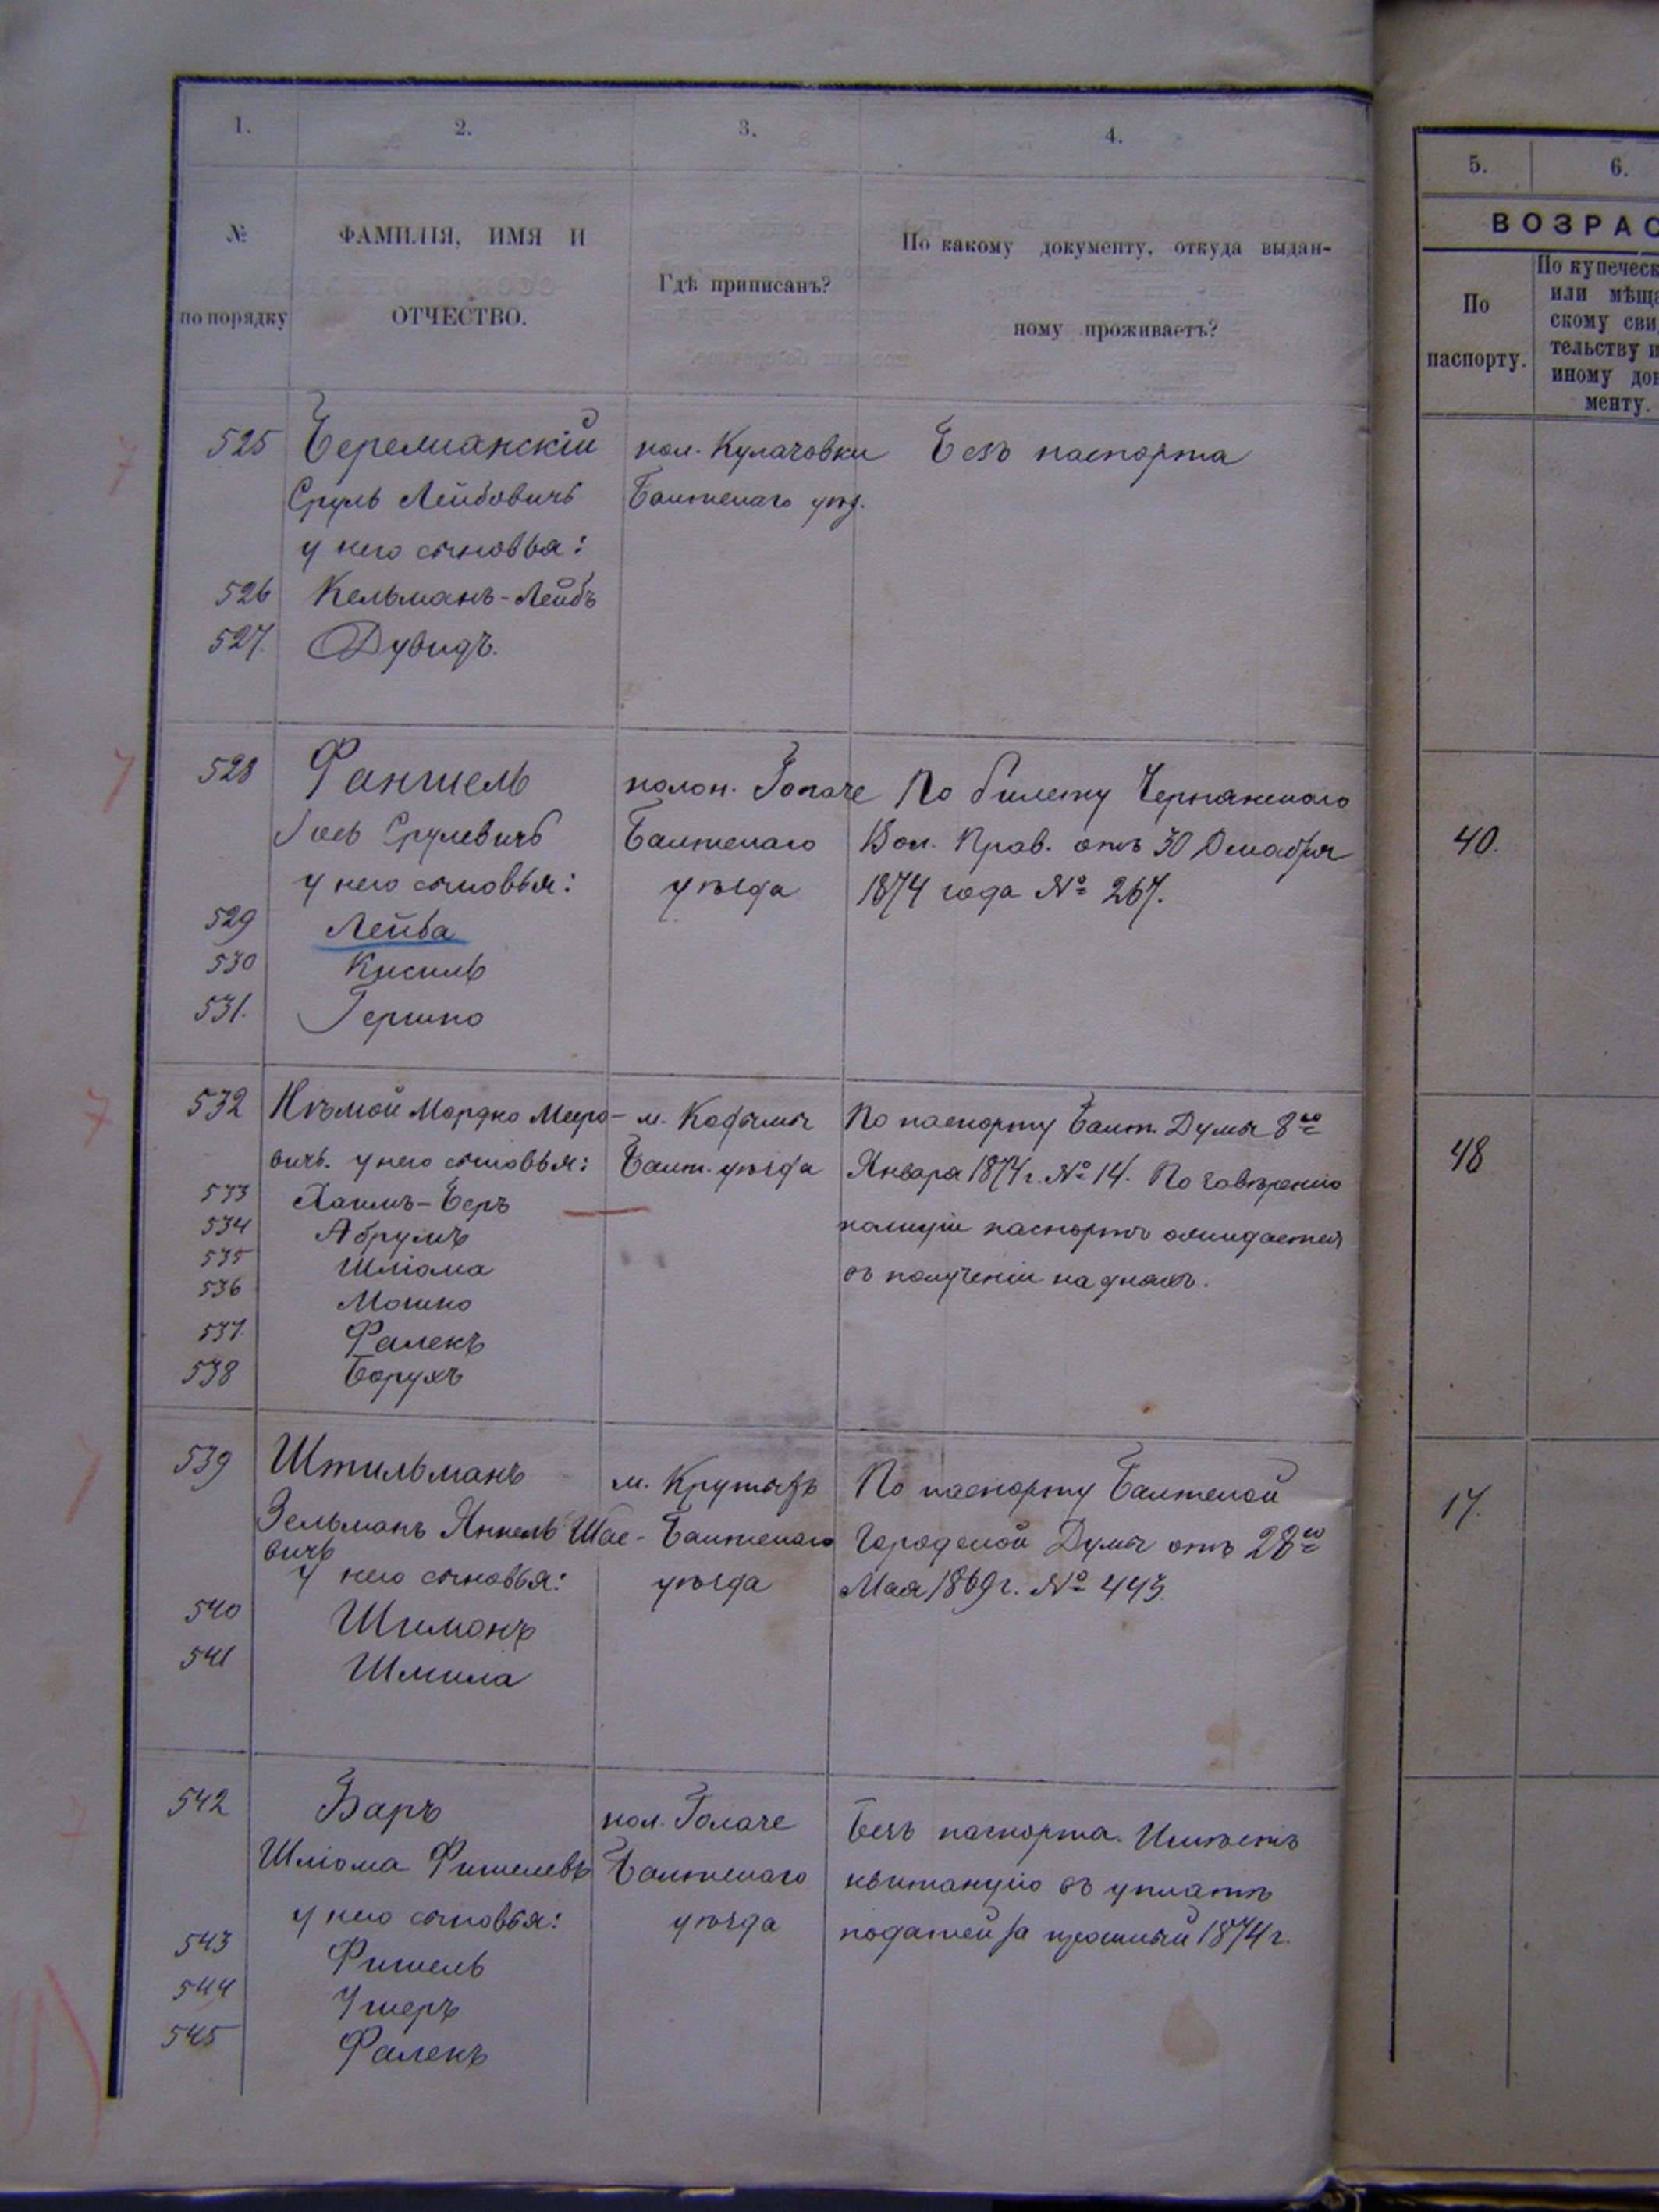 1. 2. 3. 4.
№
по порядку
ФАМИЛІЯ, ИМЯ И
ОТЧЕСТВО.
Гдѣ приписанъ?
По какому документу, откуда выдан-
ному проживаетъ?
5. 6.
ВОЗРАС
По
паспорту.
По купеческ
или мѣща
скому сви
тельству и
иному док
менту.
525 Беремianскій
Сруль Лейбовичъ
у него сыновья:
526 Кельманъ-Лейбъ
527. Дувидъ.
кол. Кулачовки
Балтскаго уѣз.
Безъ паспорта
528 Фаншель
Іось Срулевичъ
у него сыновья:
529 Лейба
530 Кисиль
531. Гершко
колон. Голаче
Балтскаго
уѣзда
По билету Чернянскаго
Вол. Прав. отъ 30 Декабря
1874 года № 267.
40.
532 Нѣмой Мордко Мееро-
вичъ. у него сыновья:
533 Хаимъ-Беръ
534 Абрумъ
535 Шліома
536 Мошко
537. Фалекъ
538 Борухъ
м. Кодымы
Балт. уѣзда
По паспорту Балт. Думы 8го
Января 1874 г. № 14. По завѣренію
полиціи паспортъ ожидается
въ полученіи на дняхъ.
48
539 Штильманъ
Зельманъ Янкель Шае-
вичъ
у него сыновья:
540 Шимонъ
541 Шмила
м. Крутыхъ
Балтскаго
уѣзда
По паспорту Балтской
Городской Думы отъ 28го
Мая 1869 г. № 443.
17.
542 Баръ
Шліома Фишелевъ
у него сыновья:
543 Фишель
544 Ушеръ
545 Фалекъ
кол. Голаче
Балтскаго
уѣзда
Безъ паспорта. Имѣетъ
квитанцію въ уплатѣ
податей за прошлый 1874 г.